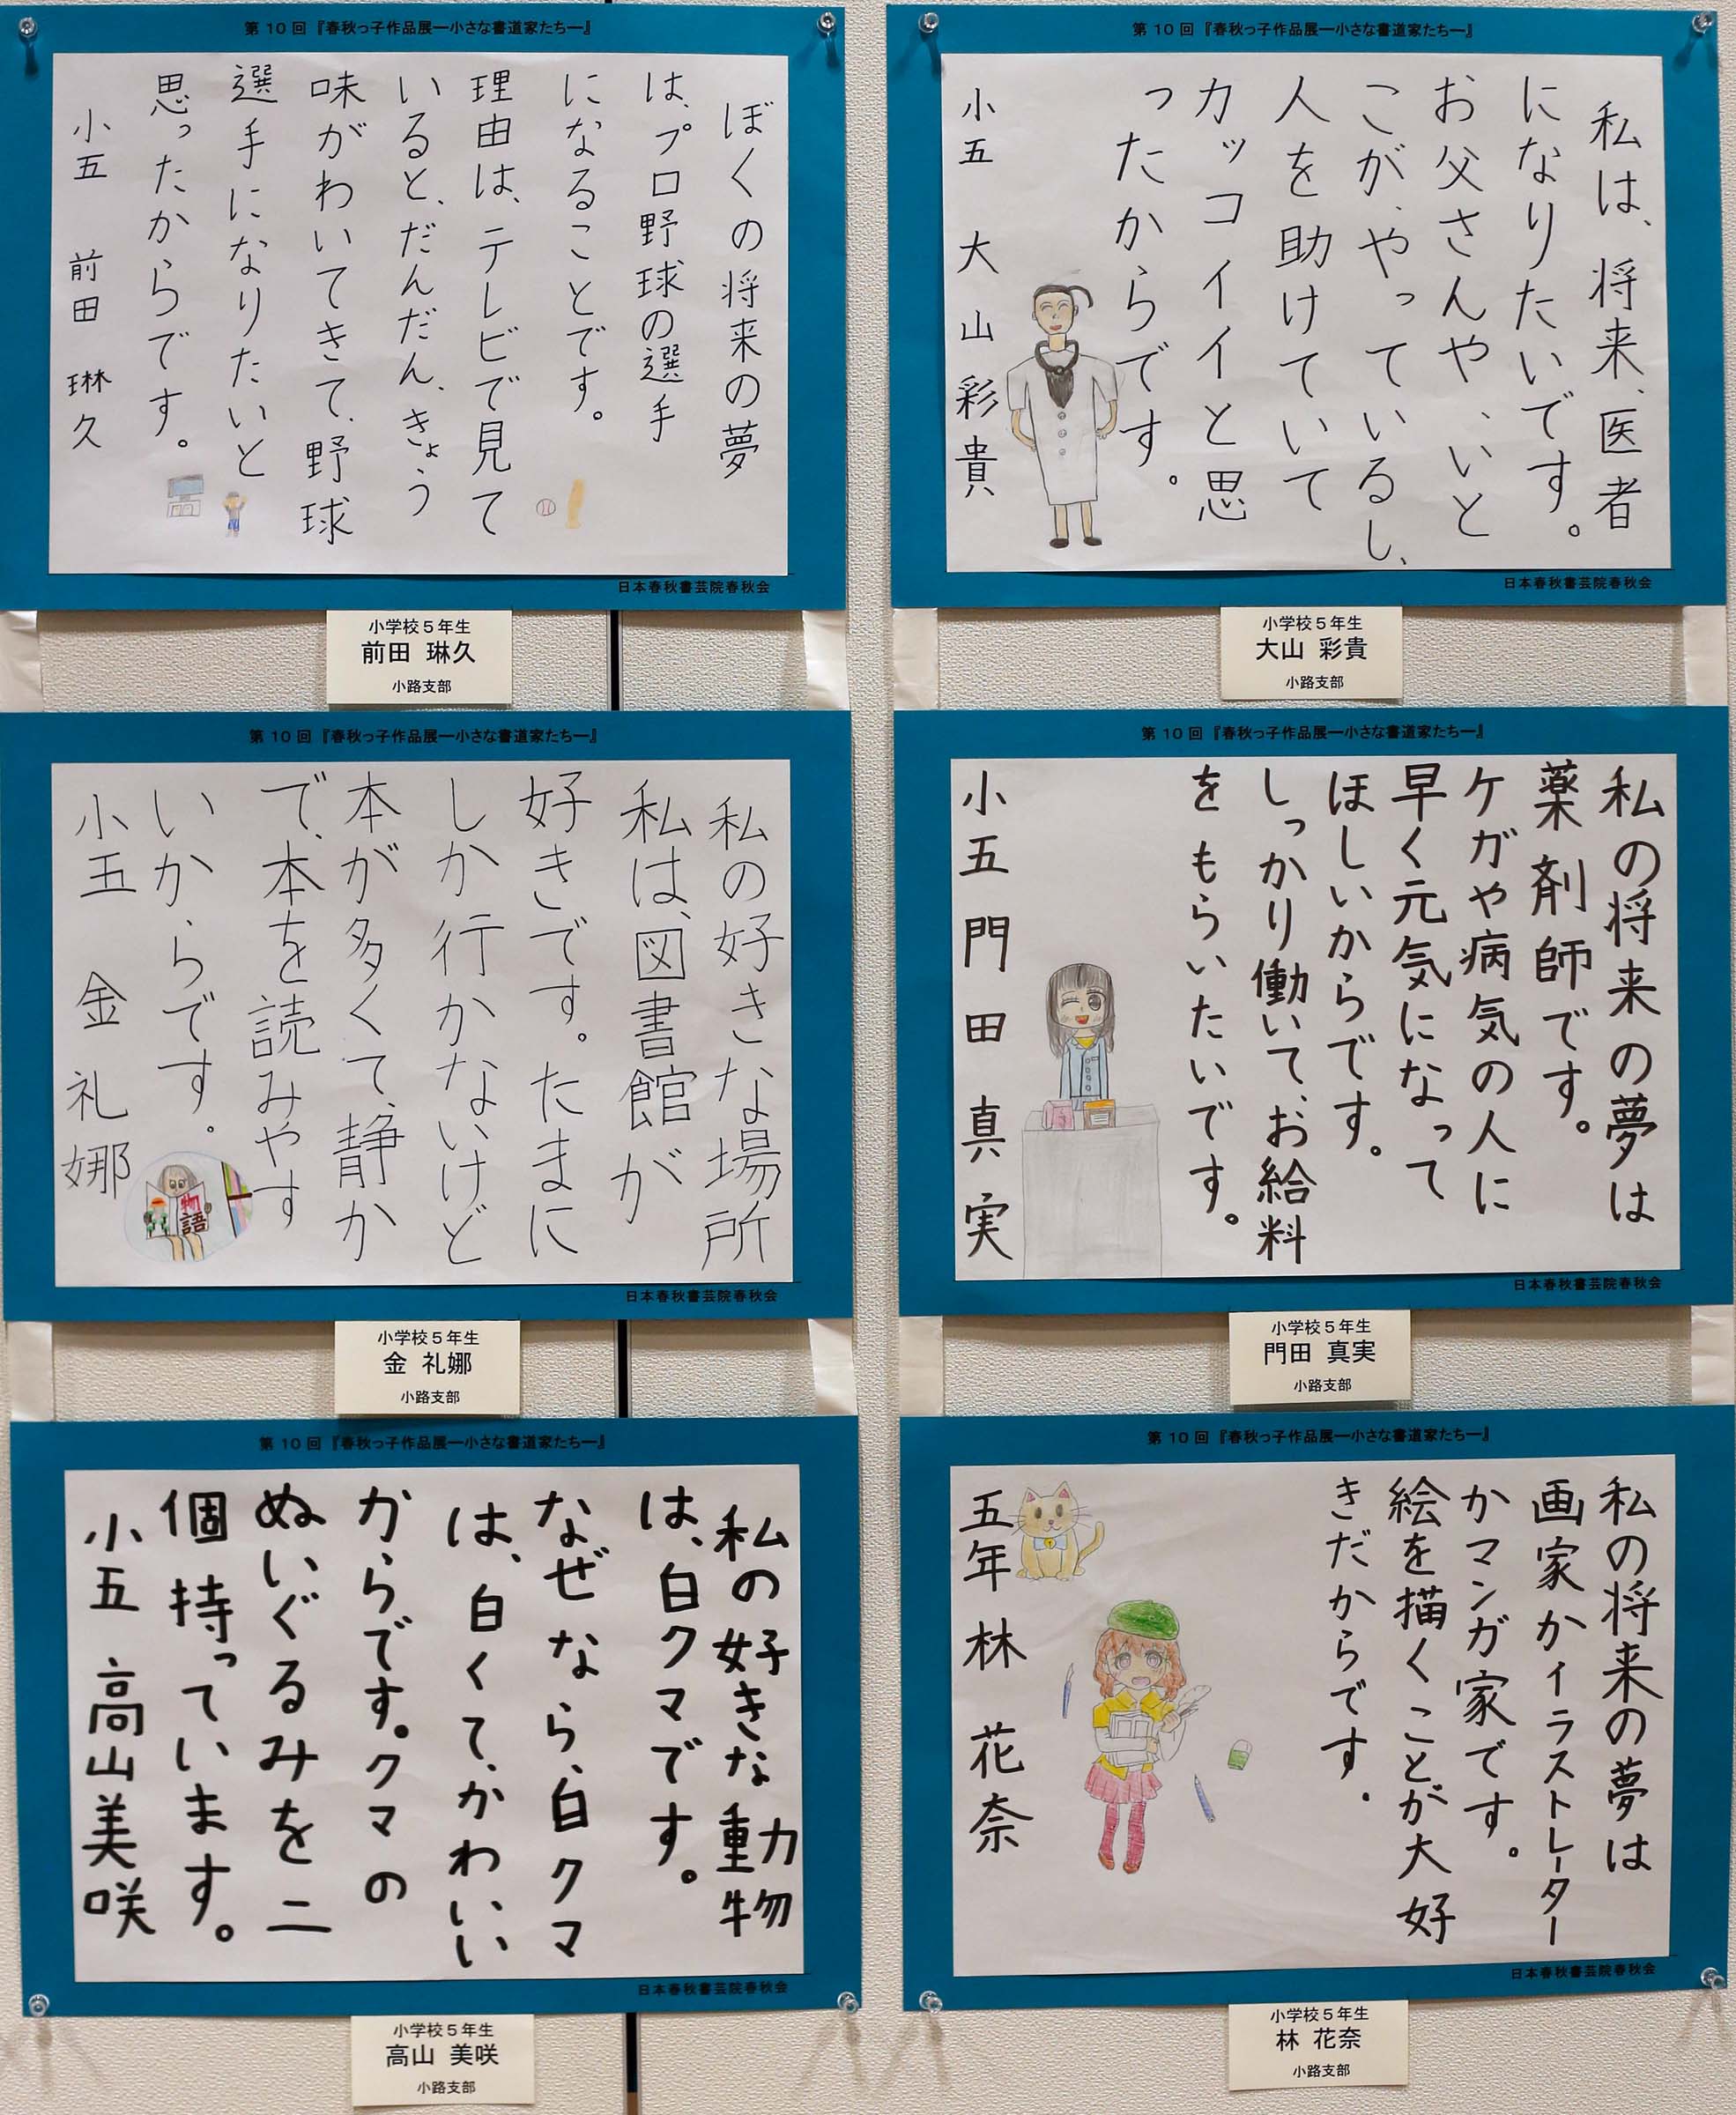 第10回『春秋っ子作品展―小さな書道家たち―』
ぼくの将来の夢
は、プロ野球の選手
になることです。
理由は、テレビで見て
いると、だんだん、きょう
味がわいてきて、野球
選手になりたいと
思ったからです。
小五 前田 琳久
日本春秋書芸院春秋会
小学校5年生
前田 琳久
小路支部
第10回『春秋っ子作品展―小さな書道家たち―』
私は、将来、医者
になりたいです。
お父さんや、いと
こが、やっているし、
人を助けていて
カッコイイと思
ったからです。
小五 大山彩貴
日本春秋書芸院春秋会
小学校5年生
大山 彩貴
小路支部
第10回『春秋っ子作品展―小さな書道家たち―』
私の好きな場所
私は、図書館が
好きです。たまに
しか行かないけど
本が多くて、静か
で、本を読みやす
いからです。
物語
小五 金礼娜
日本春秋書芸院春秋会
小学校5年生
金 礼娜
小路支部
第10回『春秋っ子作品展―小さな書道家たち―』
私の将来の夢は
薬剤師です。
ケガや病気の人に
早く元気になって
ほしいからです。
しっかり働いて、お給料
をもらいたいです。
小五門田真実
日本春秋書芸院春秋会
小学校5年生
門田 真実
小路支部
第10回『春秋っ子作品展―小さな書道家たち―』
私の好きな動物
は、白クマです。
なぜなら、白クマ
は、白くて、かわいい
からです。クマの
ぬいぐるみを二
個持っています。
小五 高山美咲
日本春秋書芸院春秋会
小学校5年生
高山 美咲
小路支部
第10回『春秋っ子作品展―小さな書道家たち―』
私の将来の夢は
画家かイラストレーター
かマンガ家です。
絵を描くことが大好
きだからです。
五年 林 花奈
日本春秋書芸院春秋会
小学校5年生
林 花奈
小路支部